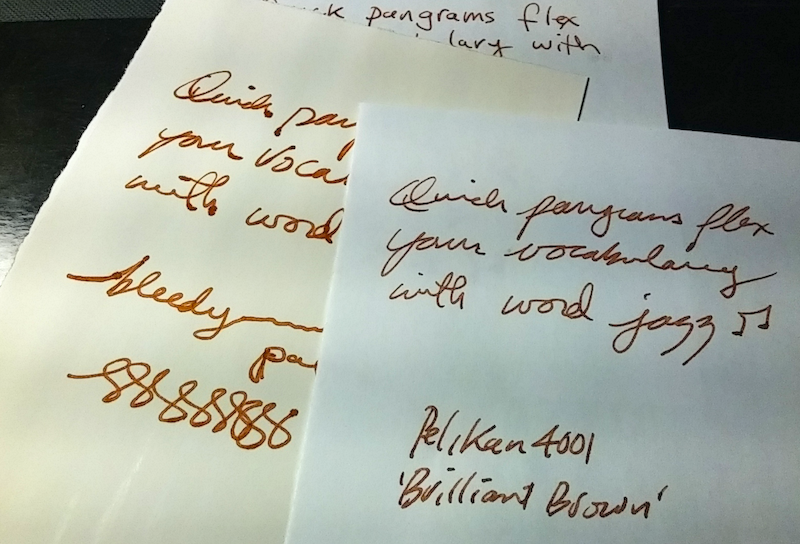 pangrams flex
lary with
Quick pan
your voca
with word
bleedy
pa
Quick pangrams flex
your vocabulary
with word jazz ♫
Pelikan 4001
'Brilliant Brown'